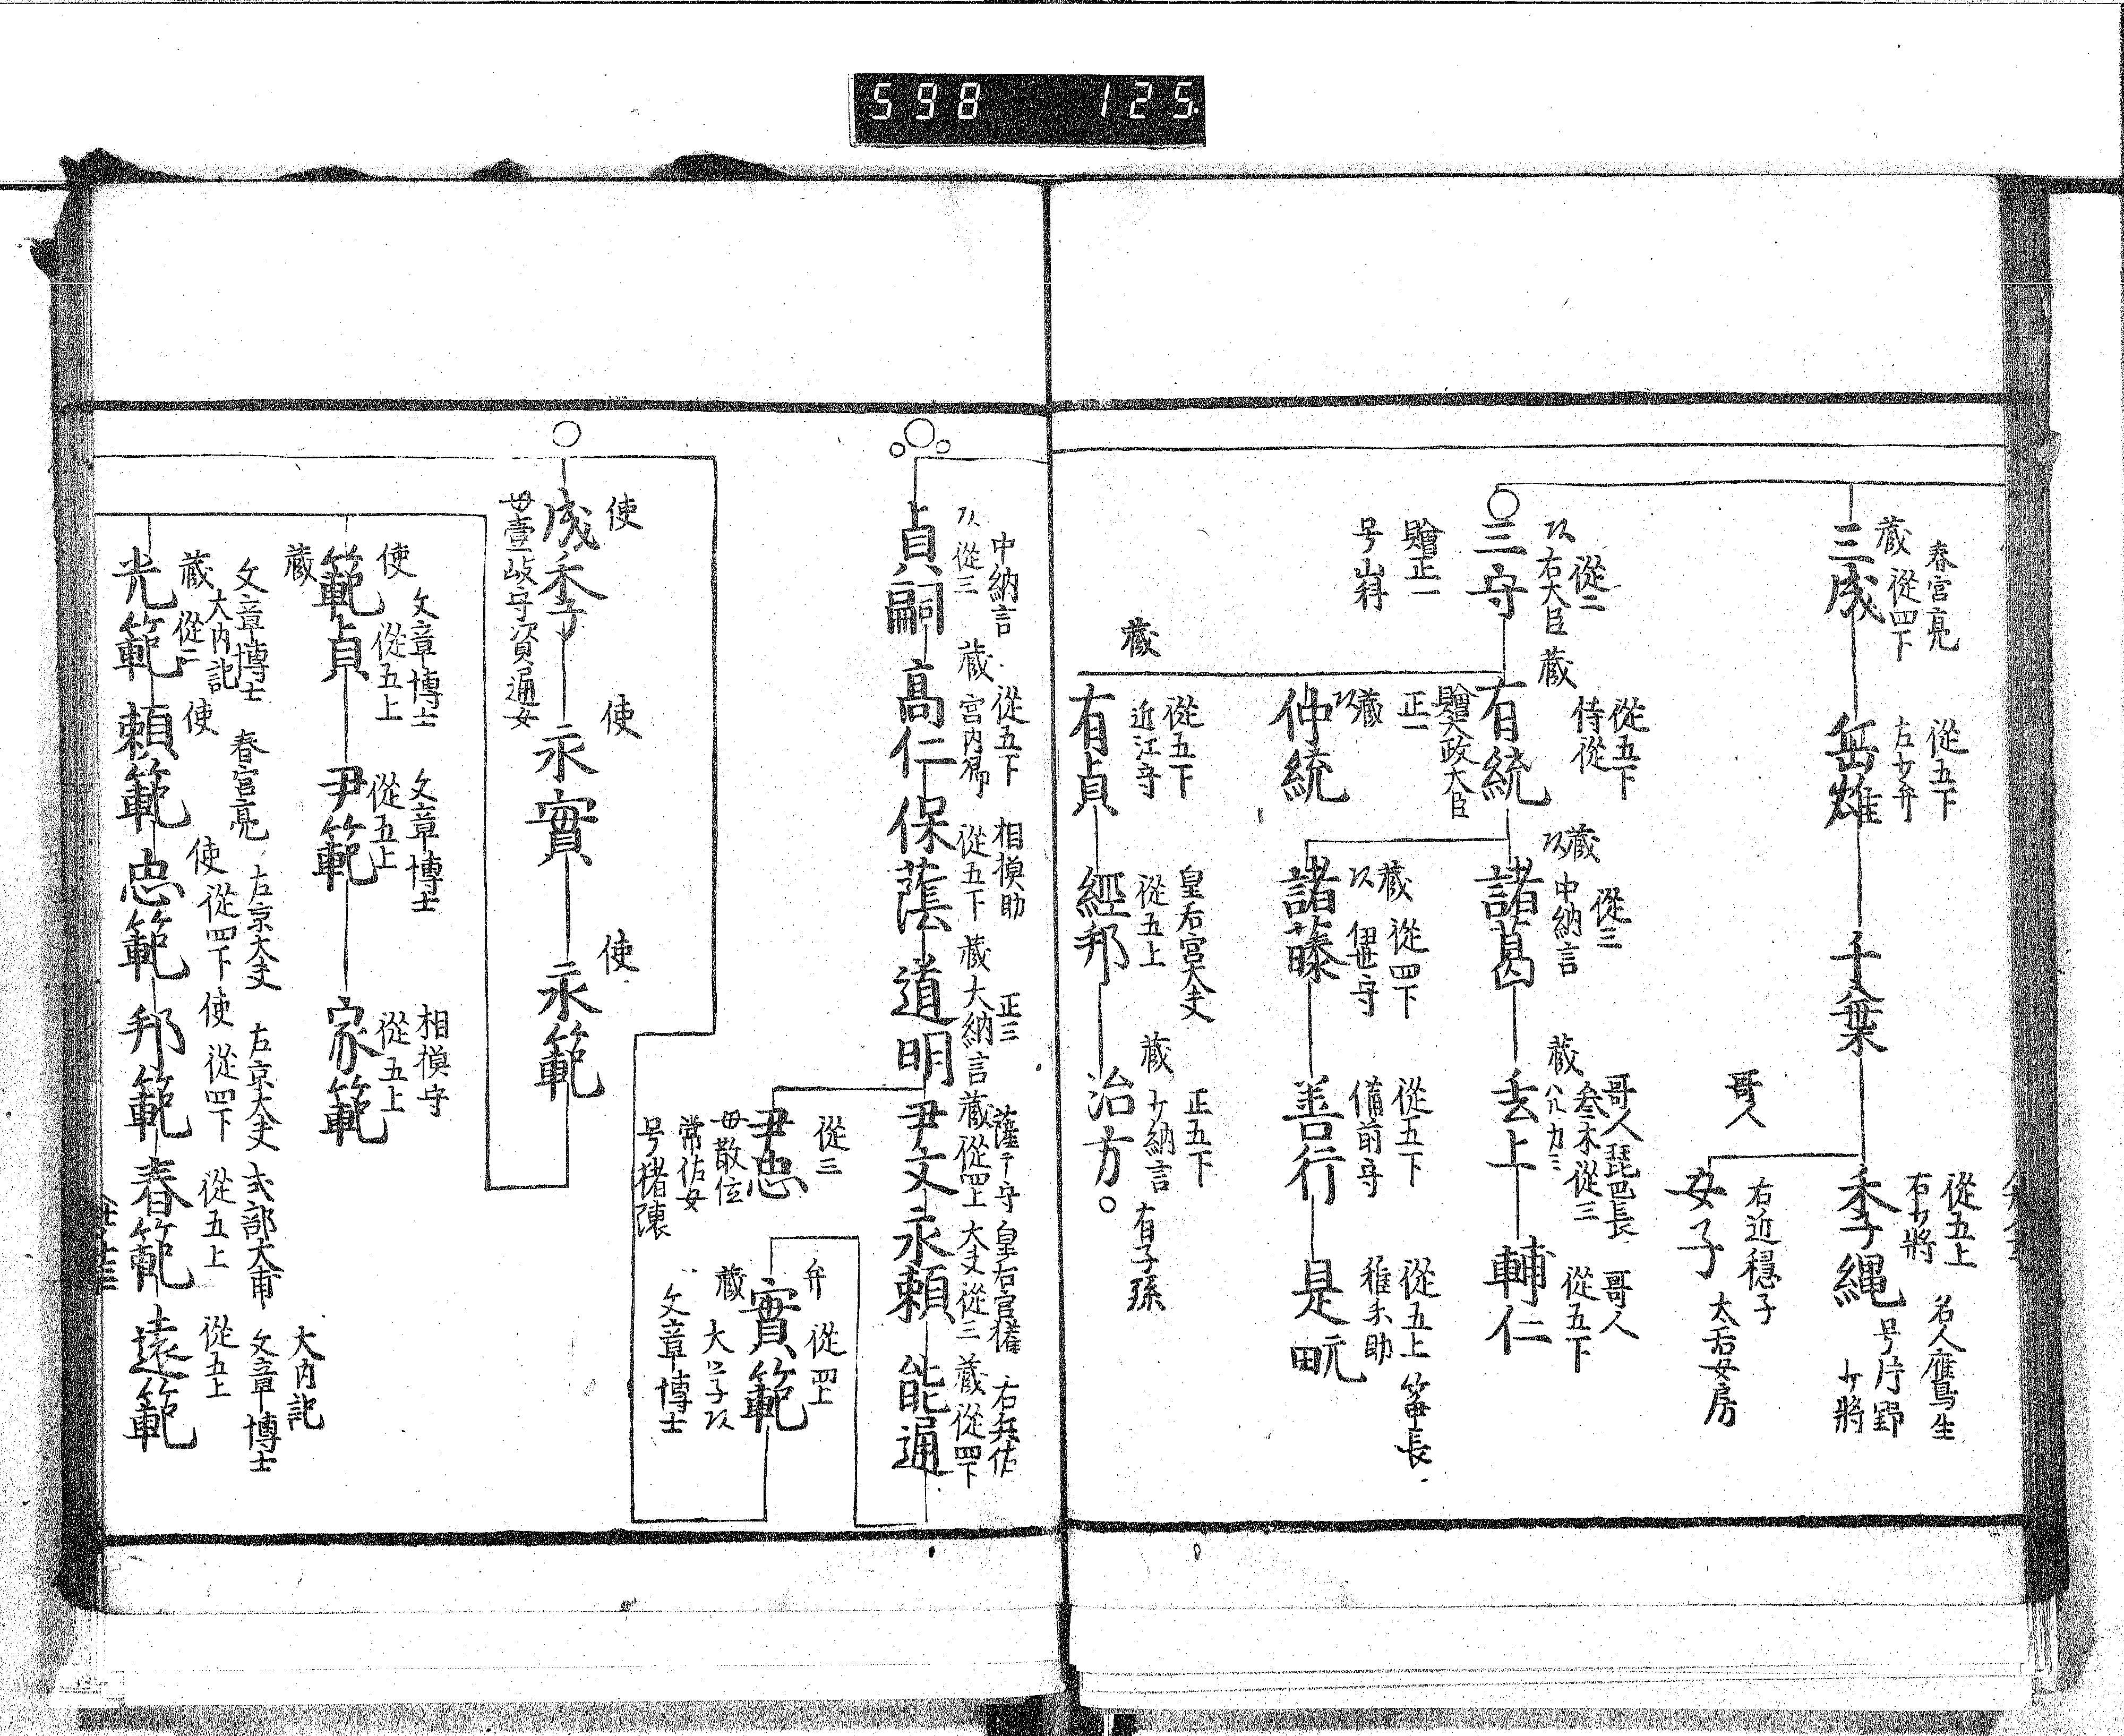 598 125
春宮亮
蔵 從四下
三成
從五下
左少弁
岳雄
千葉
從五上
右少將
季縄
名人鷹生
号片野
少將
哥人
女子
右近穩子
太后女房
從二
右大臣
三守
贈正一
号山科
蔵
從五下
侍從
有統
贈大政大臣
正一
蔵
仲統
蔵
從五下
近江守
有貞
蔵
從三
中納言
諸葛
蔵
哥人琵巴長
叅木從三
玄上
哥人
從五下
輔仁
蔵
從四下
伊世守
諸藤
從五下
備前守
善行
從五上
雅樂助
是
長
皇后宮大夫
從五上
經邦
蔵
正五下
少納言
治方
有子孫
中納言
從三
貞嗣
蔵
從五下
宮内卿
高仁
相模助
從五下
保蔭
正三
蔵大納言
道明
蔵從四上
尹文
皇后宮權
大夫從三
永頼
右兵佐
蔵從四下
能通
從三
尹忠
母散位
常佐女
弁
從四上
實範
蔵
文章博士
使
成季
母壹岐守資通女
使
永實
使
永範
使
文章博士
從五上
範貞
蔵
文章博士
從五上
尹範
相模守
從五上
家範
文章博士
大内記
蔵 從二
光範
使
春宮亮
頼範
使
左京大夫
從四下
忠範
使
左京大夫
從四下
邦範
式部大甫
從五上
春範
大内記
文章博士
從五上
遠範